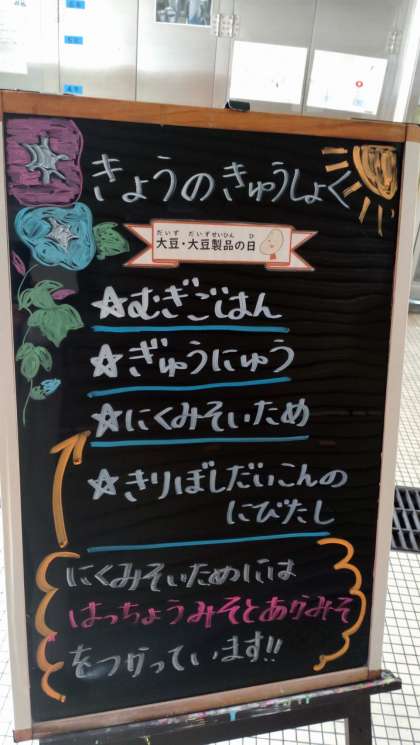 きょうのきゅうしょく
だいず だいずせいひん ひ
大豆・大豆製品の日
☆むぎごはん
☆ぎゅうにゅう
☆にくみそいため
☆きりぼしだいこんの
にびたし
にくみそいためには
はっちょうみそとあかみそ
をつかっています!!